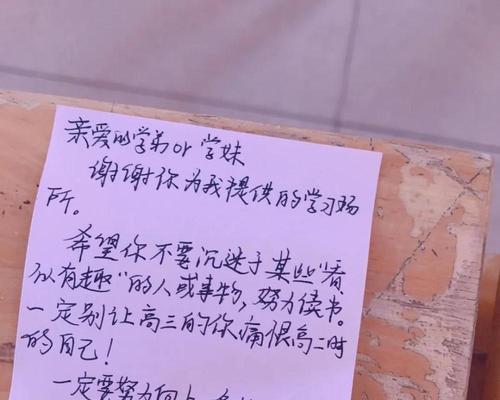 亲爱的学弟or学妹
谢谢你为我提供的学习场
所。
希望你不要沉迷于某些"看
似有趣"的人或事物,努力读书。
一定别让高三的你痛恨高二时
的自己!
一定要努力向上